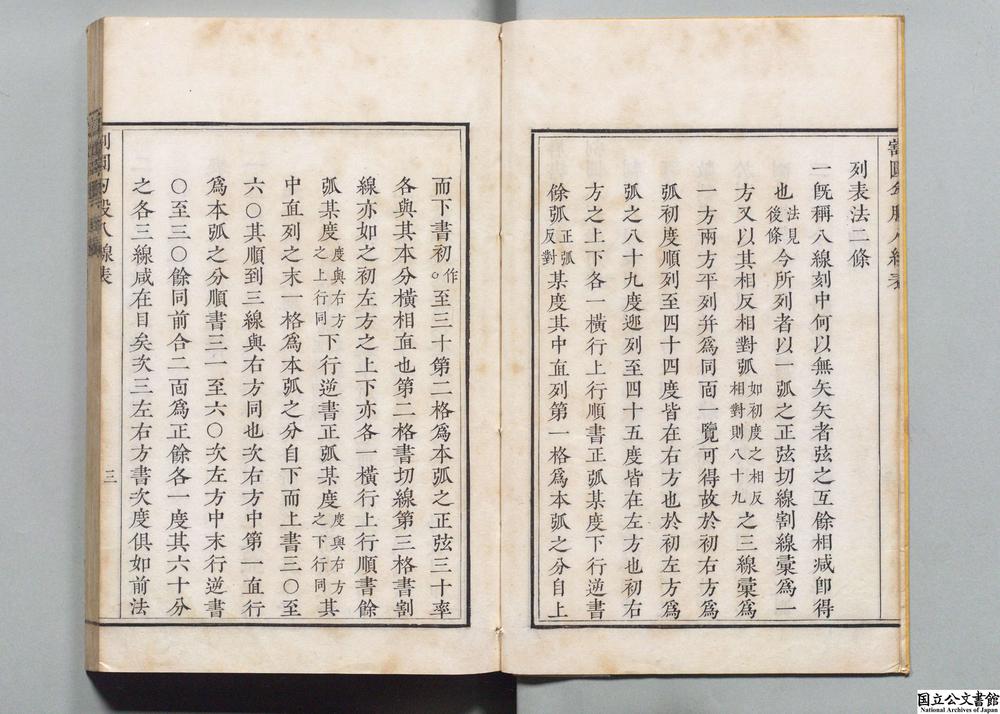 列表法二條
一旣稱八線刻中何以無矢矢者弦之互餘相减卽得
也法見後條今所列者以一弧之正弦切線割線彙爲一
方又以其相反相對弧如初度之相反相對則八十九之三線彙爲
一方兩方平列幷爲同靣一覽可得故於初右方爲
弧初度順列至四十四度皆在右方也於初左方爲
弧之八十九度逆列至四十五度皆在左方也初右
方之上下各一橫行上行順書正弧某度下行逆書
餘弧正弧反對某度其中直列第一格爲本弧之分自上
而下書初作〇至三十第二格爲本弧之正弦三十率
各與其本分橫相直也第二格書切線第三格書割
線亦如之初左方之上下亦各一橫行上行順書餘
弧某度度與右方之上行同下行逆書正弧某度度與右方之下行同其
中直列之末一格爲本弧之分自下而上書三〇至
六〇其順到三線與右方同也次右方中第一直行
爲本弧之分順書三一至六〇次左方中末行逆書
〇至三〇餘同前合二靣爲正餘各一度其六十分
之各三線咸在目矣次三左右方書次度俱如前法
八線表
三
国立公文書館
National Archives of Japan